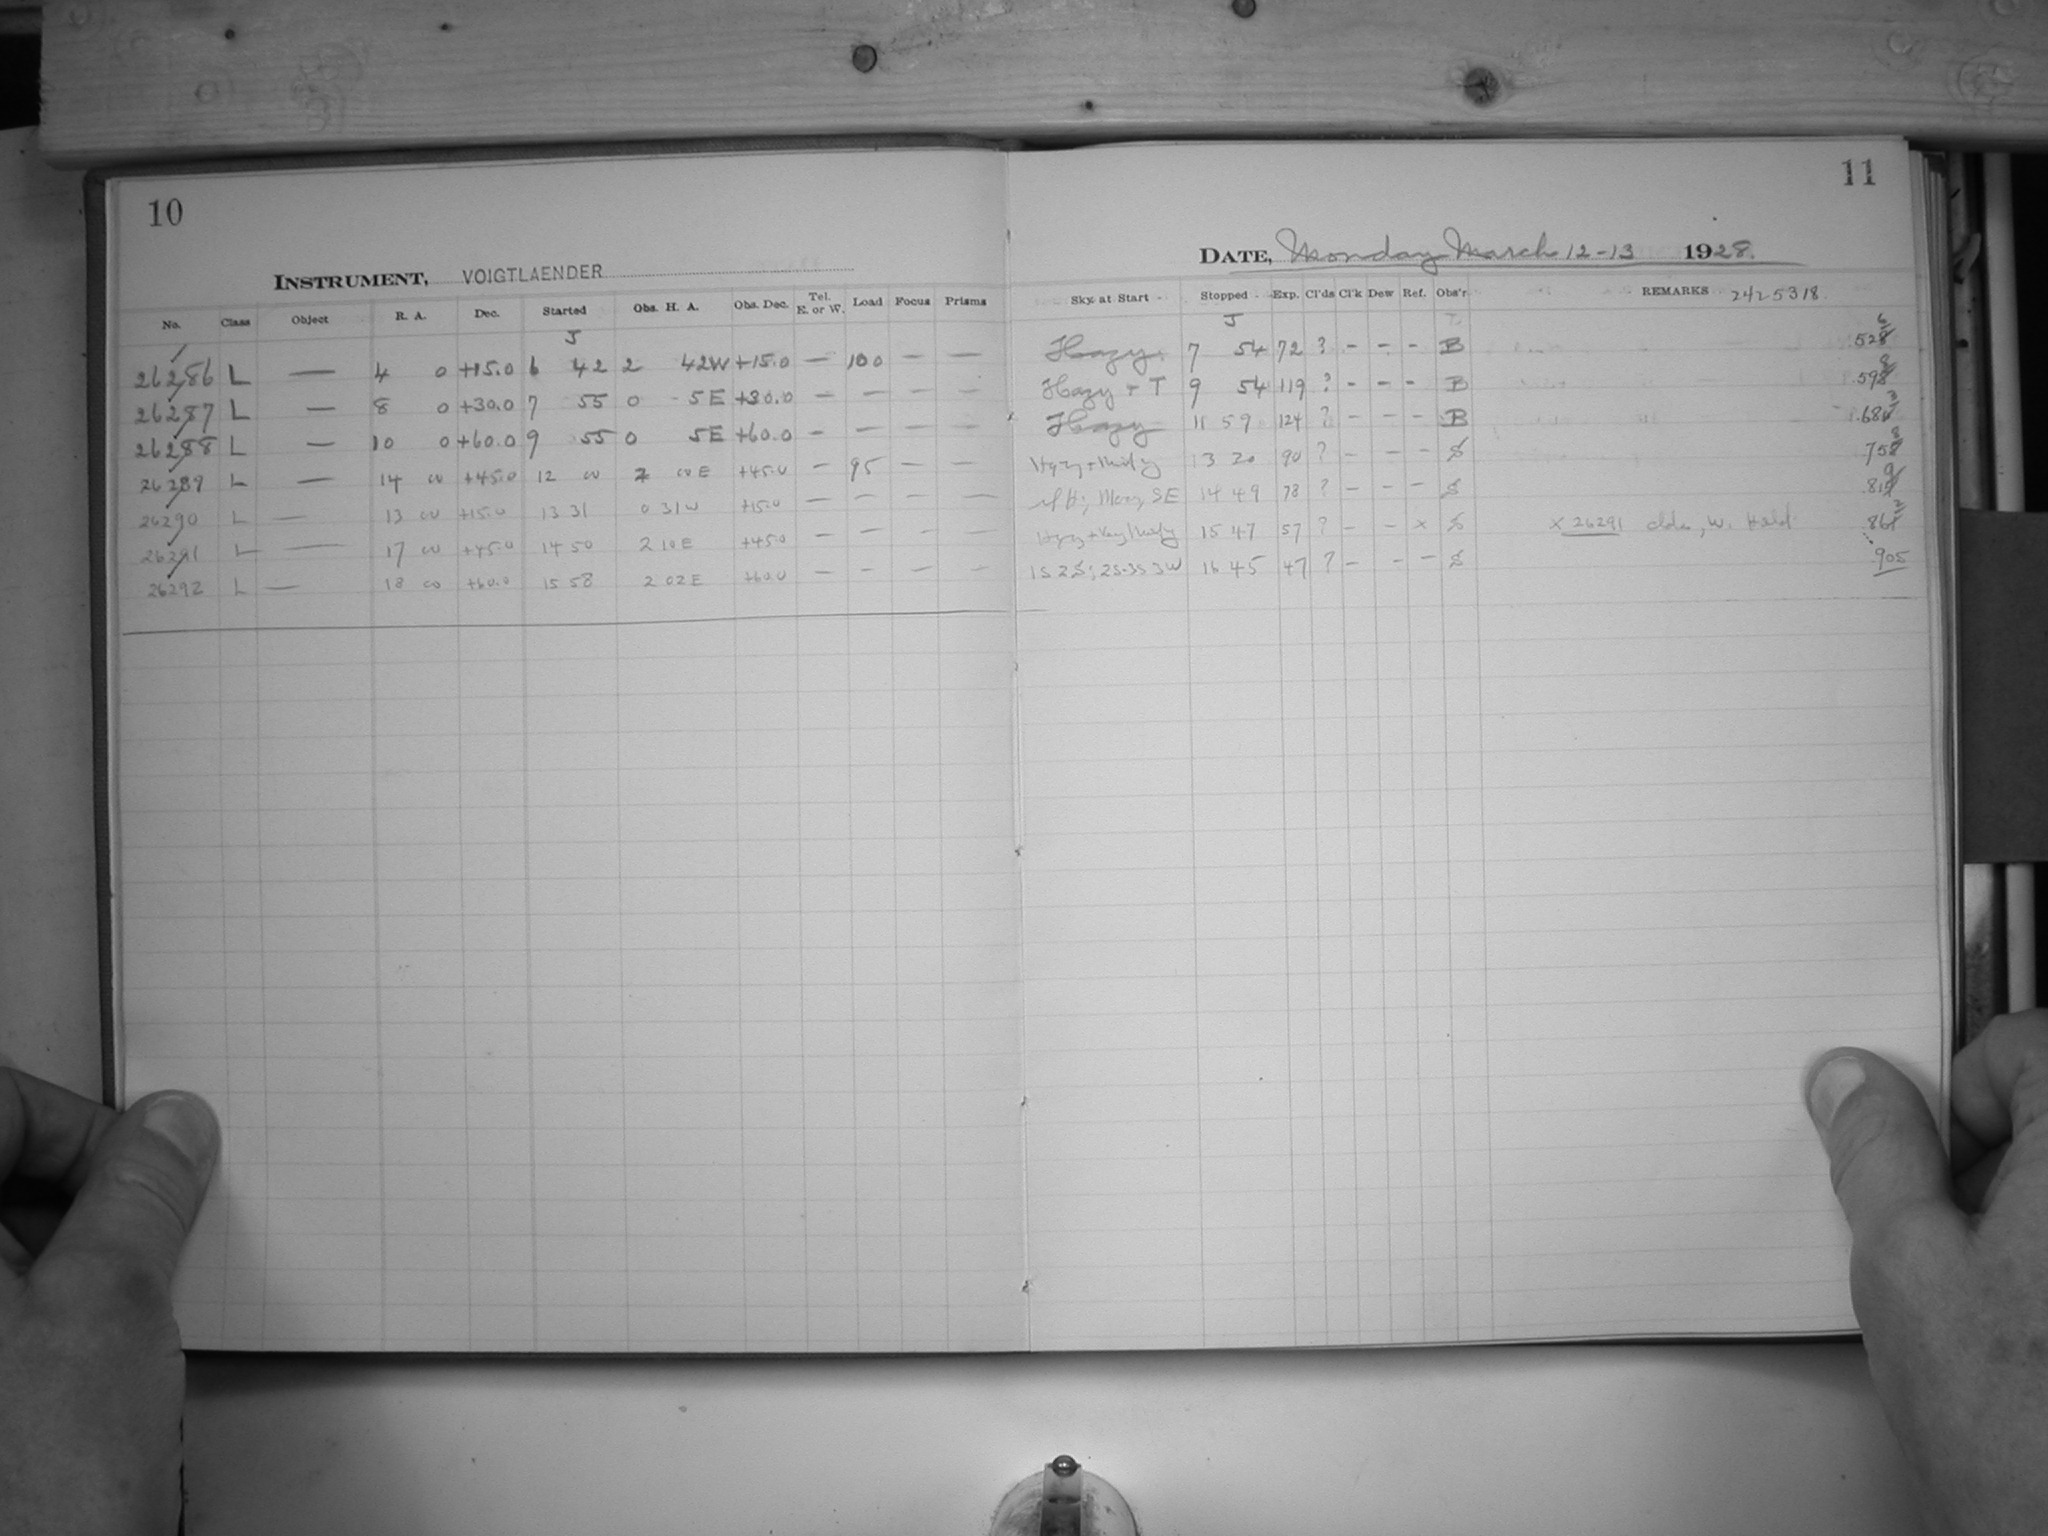 10
INSTRUMENT, VOIGTLAENDER
No. Class Object R. A. Dec. Started Obs. H. A. Obs. Dec. Tel. E. or W. Load Focus Prisms
J
26286 L — 4 0 +15.0 6 42 2 42W +15.0 — 100 — —
26287 L — 8 0 +30.0 7 55 0 5E +30.0 — — — —
26288 L — 10 0 +60.0 9 55 0 5E +60.0 — — — —
26289 L — 14 00 +45.0 12 00 2 00E +45.0 — 95 — —
26290 L — 13 00 +15.0 13 31 0 31W +15.0 — — — —
26291 L — 17 00 +45.0 14 50 2 10E +45.0 — — — —
26292 L — 18 00 +60.0 15 58 2 02E +60.0 — — — —
11
DATE, Monday March 12-13 1928.
Sky at Start Stopped Exp. Cl'ds Cl'k Dew Ref. Obs'r REMARKS 2425318.
J
Hazy 7 54 72 ? - - - B .528 6
Hazy + T 9 54 119 ? - - - B .598 8
Hazy 11 59 124 ? - - - B
13 20 90 ? - - - S 758 8
Moon, SE 14 49 78 ? - - - S
15 47 57 ? - - x S x 26291 W. .861 2
1S 2S; 2S-3S 3W 16 45 47 ? - - - S .905